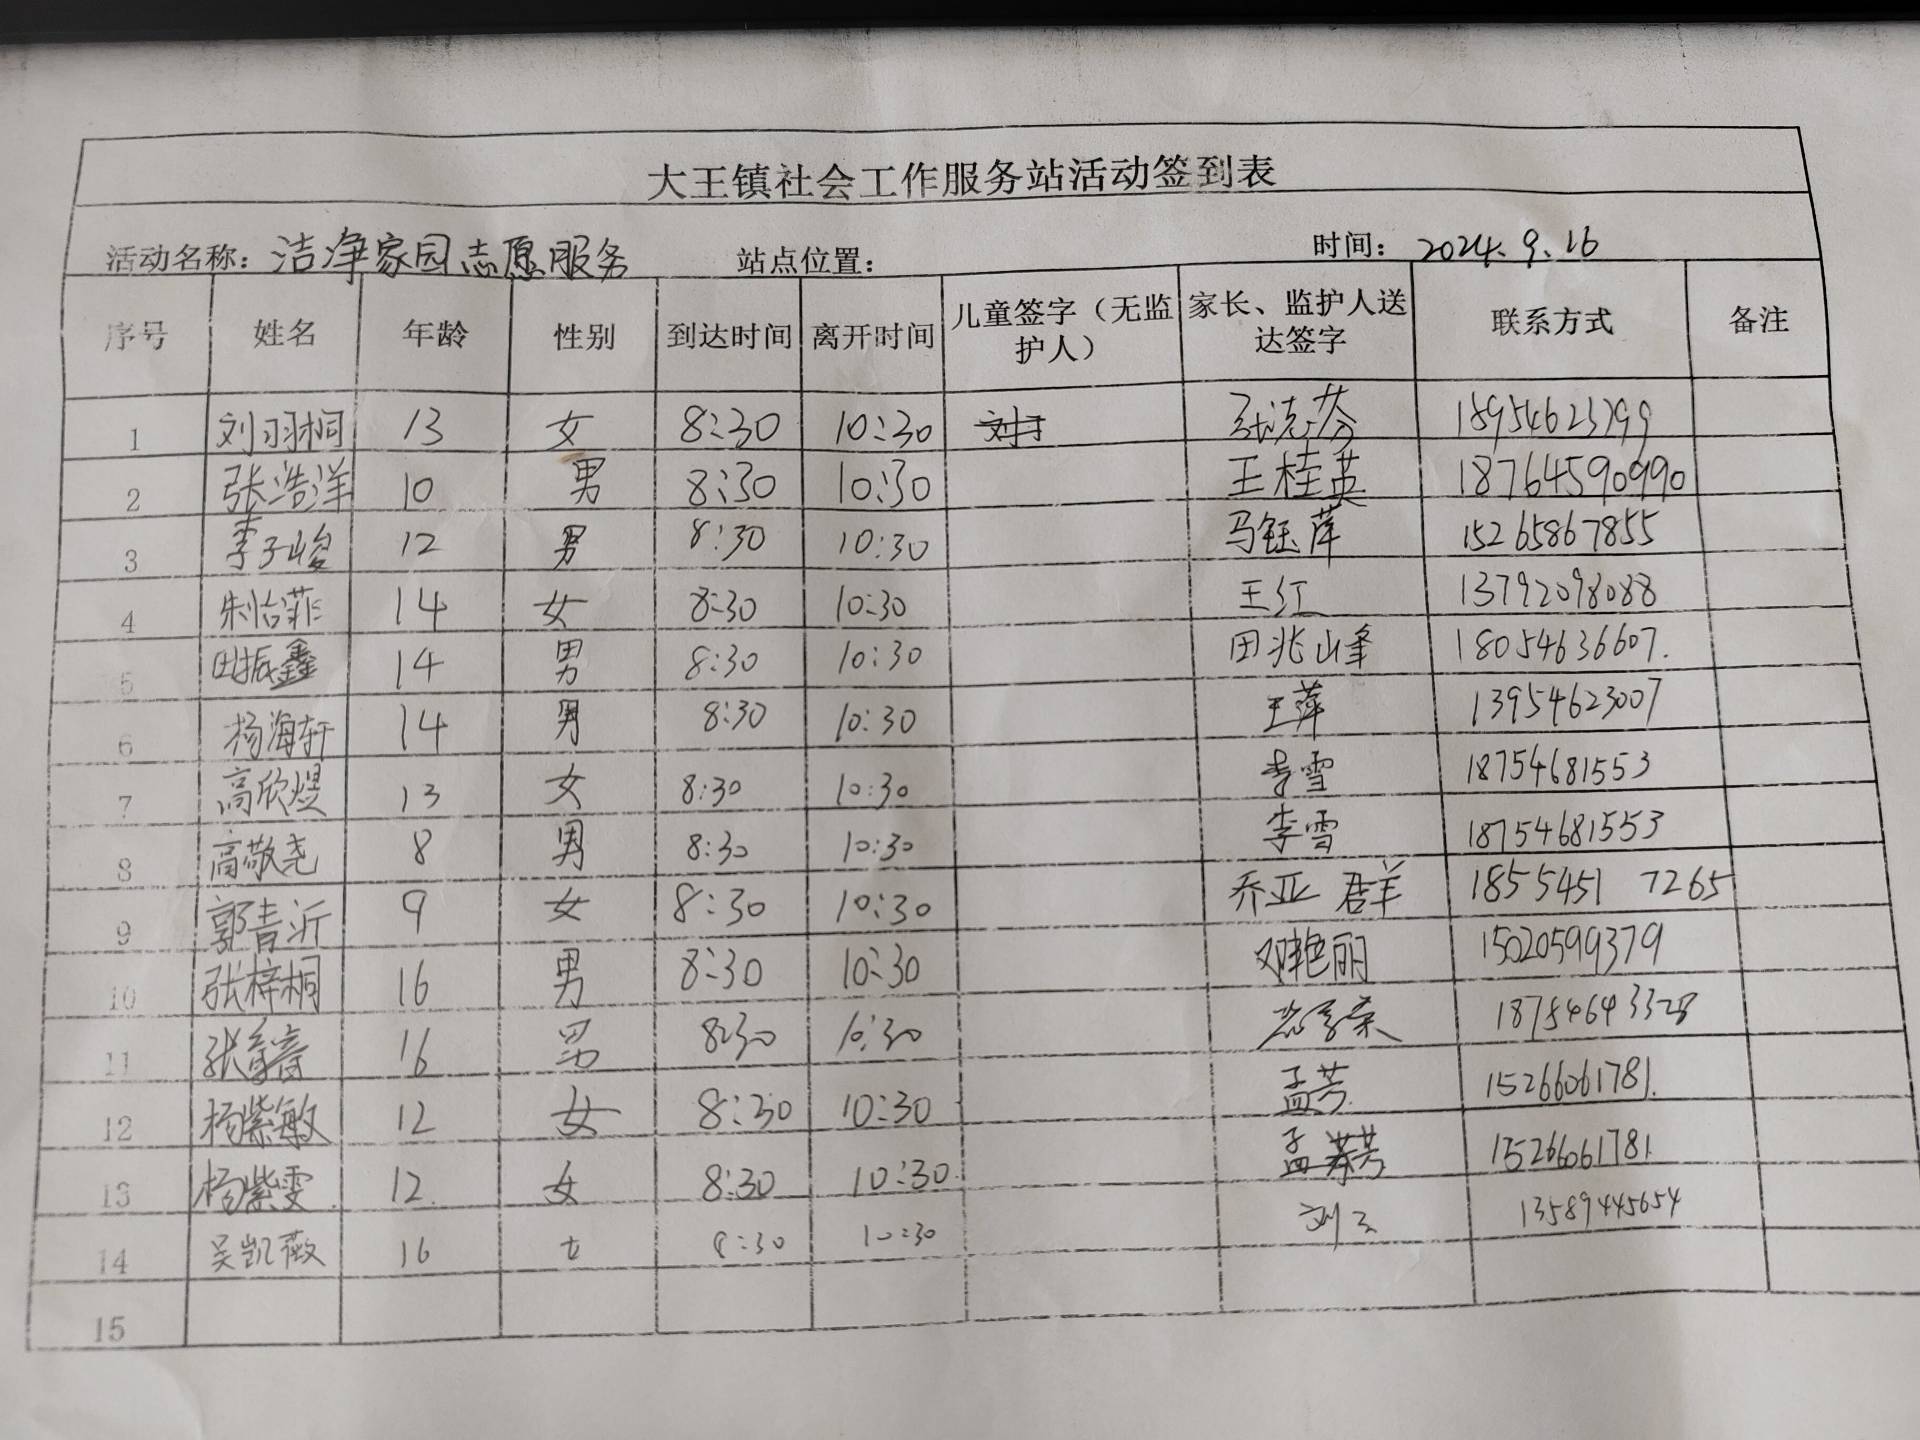 大王镇社会工作服务站活动签到表
活动名称：洁净家园志愿服务 站点位置： 时间：2024.9.16
序号 姓名 年龄 性别 到达时间 离开时间 儿童签字（无监护人） 家长、监护人送达签字 联系方式 备注
1 刘羽桐 13 女 8:30 10:30 18954623799
2 张浩洋 10 男 8:30 10:30 王桂英 18764590990
3 李子峻 12 男 8:30 10:30 马钰萍 15265867855
4 朱怡菲 14 女 8:30 10:30 王红 13792098088
5 田振鑫 14 男 8:30 10:30 田兆峰 18054636607.
6 杨海轩 14 男 8:30 10:30 王萍 13954623007
7 高欣煜 13 女 8:30 10:30 李雪 18754681553
8 高敬尧 8 男 8:30 10:30 李雪 18754681553
9 郭青沂 9 女 8:30 10:30 乔亚群 18554517265
10 张梓桐 16 男 8:30 10:30 邓艳丽 15020599379
11 16 男 8:30 10:30 18754643328
12 杨紫敏 12 女 8:30 10:30 孟芳 15266061781.
13 杨紫雯 12. 女 8:30 10:30. 孟芳 15266061781.
14 吴凯薇 16 女 8:30 10:30 13589445654
15